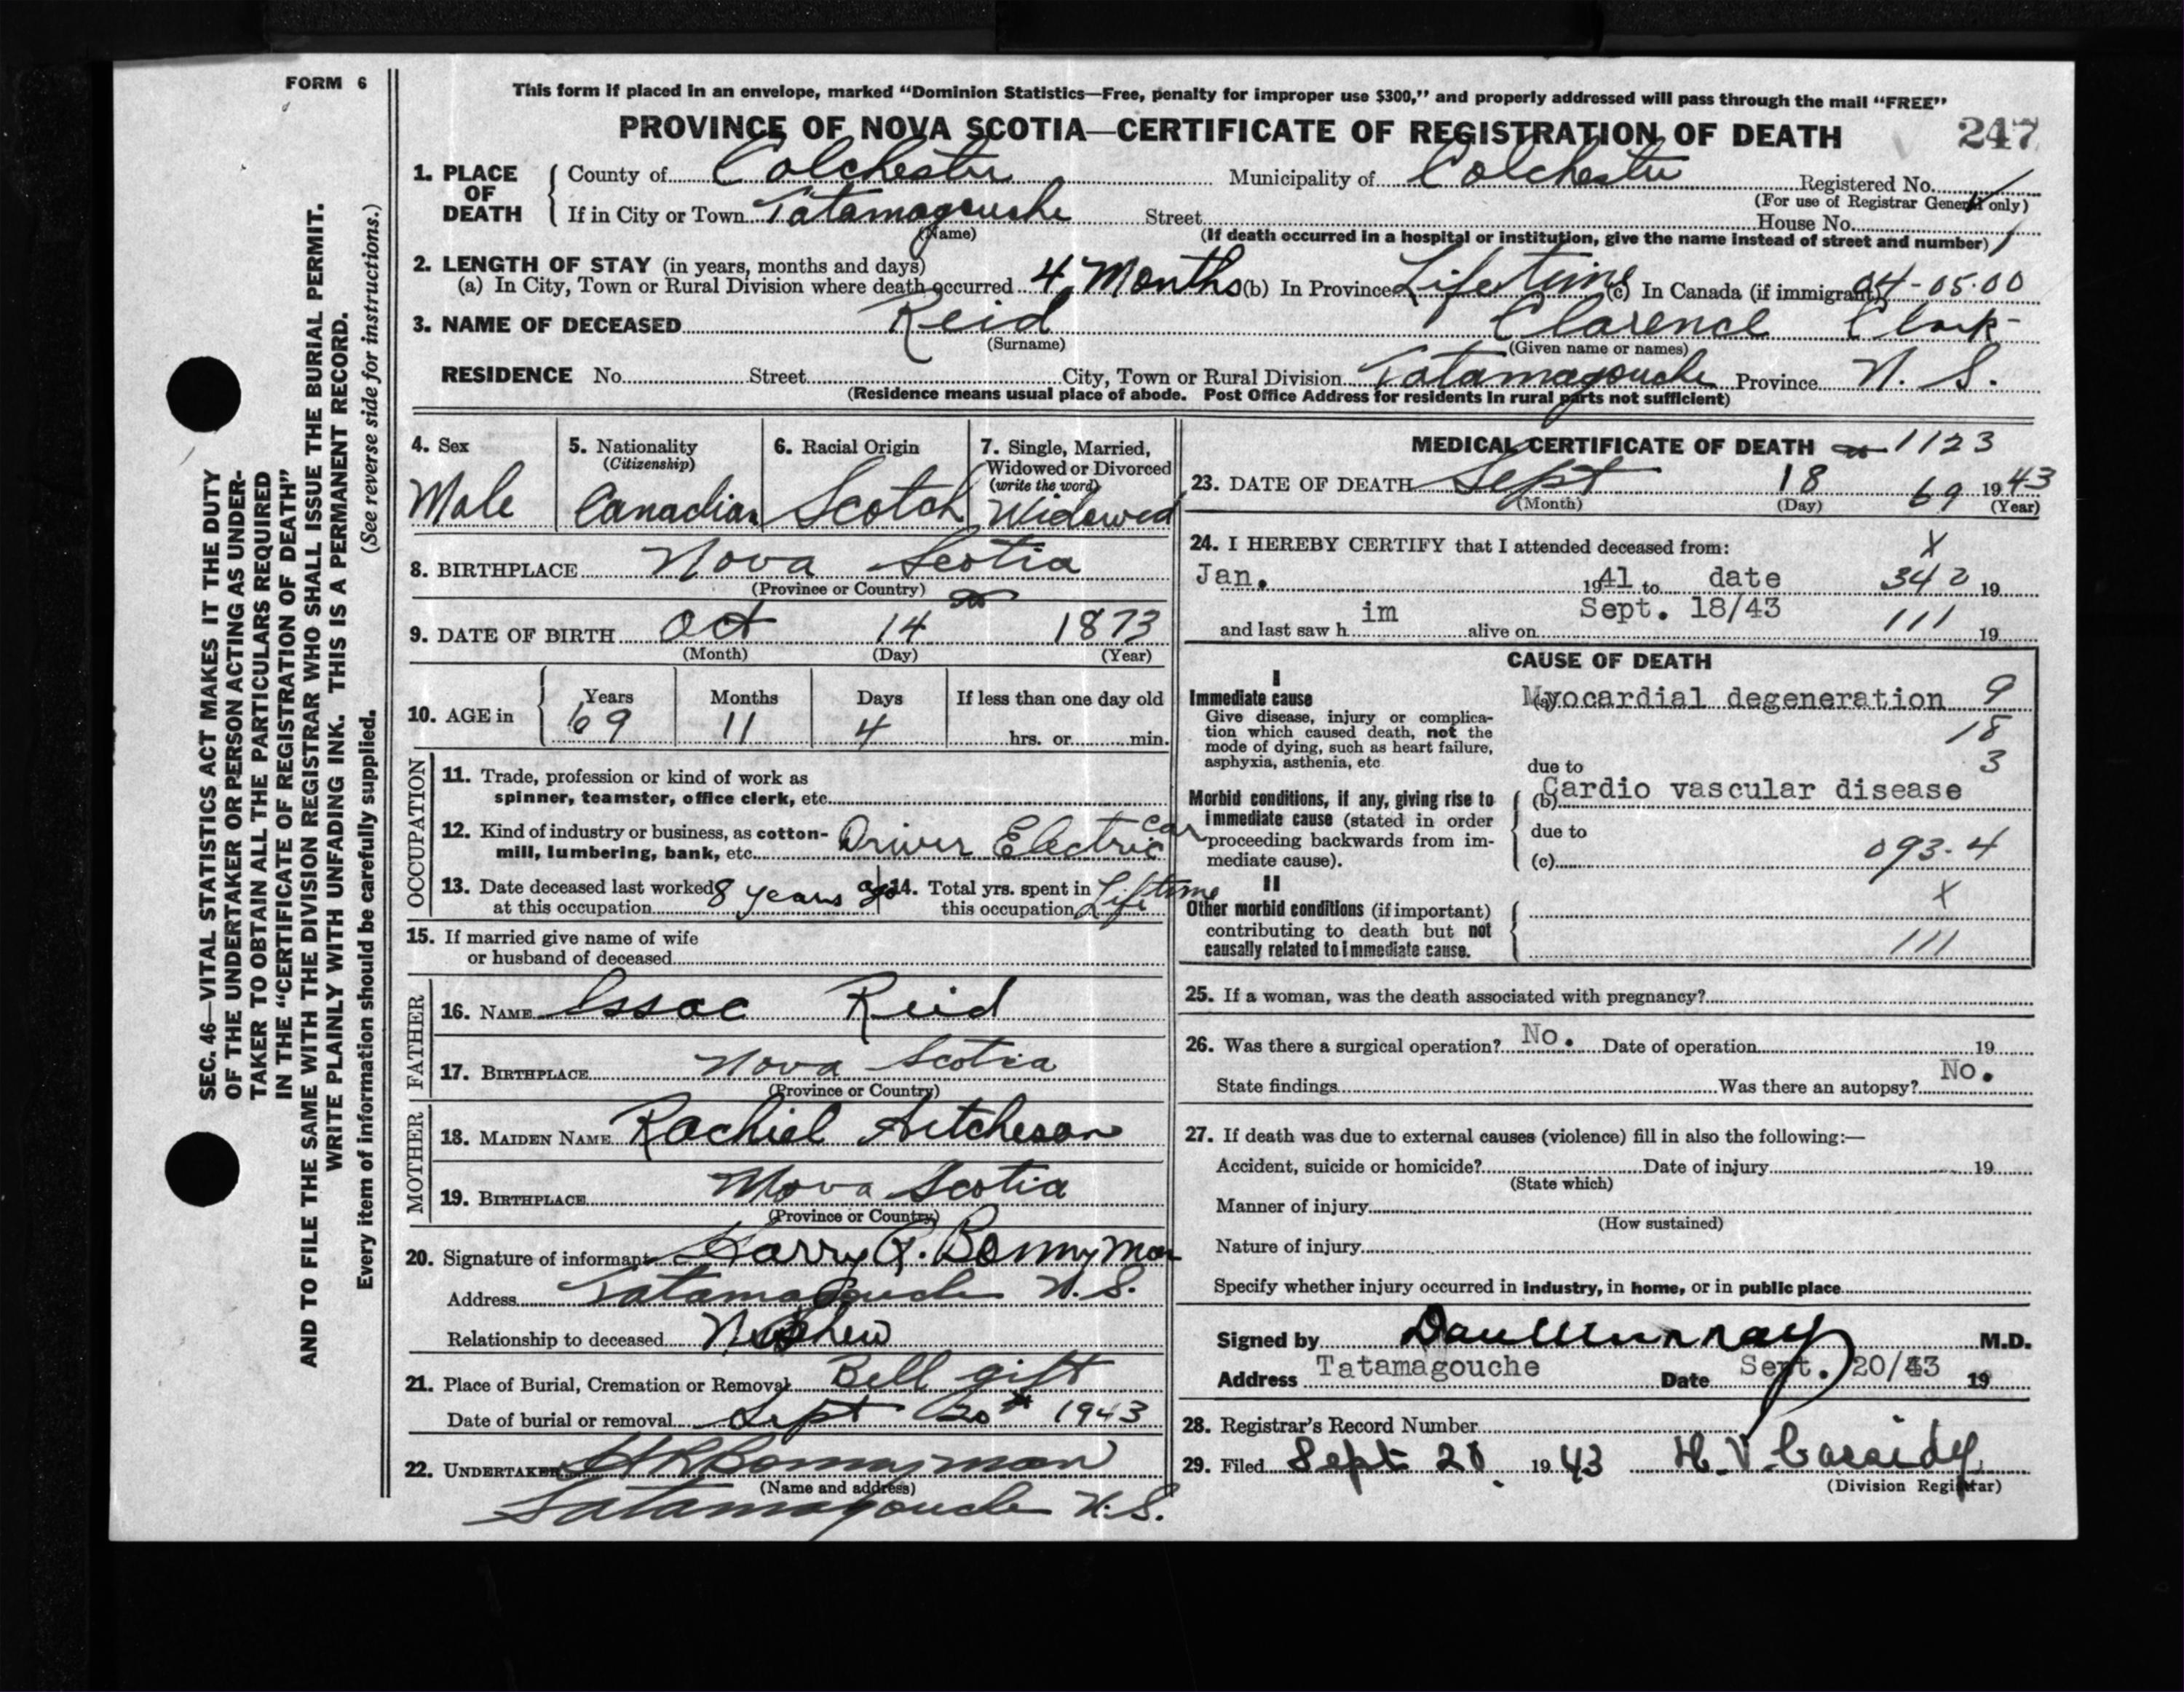 FORM 6
This form if placed in an envelope, marked “Dominion Statistics—Free, penalty for improper use $300,” and properly addressed will pass through the mail “FREE”
PROVINCE OF NOVA SCOTIA—CERTIFICATE OF REGISTRATION OF DEATH 247
1. PLACE OF DEATH County of Colchester Municipality of Colchester Registered No.
(For use of Registrar General only)
If in City or Town Tatamagouche Street House No.
(Name) (If death occurred in a hospital or institution, give the name instead of street and number)
2. LENGTH OF STAY (in years, months and days)
(a) In City, Town or Rural Division where death occurred 4 Months (b) In Province Lifetime (c) In Canada (if immigrant) 04-05.00
3. NAME OF DECEASED Reid Clarence Clark
(Surname) (Given name or names)
RESIDENCE No. Street City, Town or Rural Division Tatamagouche Province N. S.
(Residence means usual place of abode. Post Office Address for residents in rural parts not sufficient)
4. Sex
Male
5. Nationality
(Citizenship)
Canadian
6. Racial Origin
Scotch
7. Single, Married,
Widowed or Divorced
(write the word)
Widowed
8. BIRTHPLACE Nova Scotia
(Province or Country)
9. DATE OF BIRTH Oct 14 1873
(Month) (Day) (Year)
10. AGE in Years Months Days If less than one day old
69 11 4 hrs. or min.
OCCUPATION
11. Trade, profession or kind of work as
spinner, teamster, office clerk, etc.
12. Kind of industry or business, as cotton-
mill, lumbering, bank, etc. Driver Electric car
13. Date deceased last worked
at this occupation 8 years ago
14. Total yrs. spent in
this occupation Lifetime
15. If married give name of wife
or husband of deceased
FATHER
16. NAME Issac Reid
17. BIRTHPLACE Nova Scotia
(Province or Country)
MOTHER
18. MAIDEN NAME Rachiel Aitcheson
19. BIRTHPLACE Nova Scotia
(Province or Country)
20. Signature of informant Harry R. Bonnyman
Address Tatamagouche N. S.
Relationship to deceased Nephew
21. Place of Burial, Cremation or Removal Bell gift
Date of burial or removal Sept 20th 1943
22. UNDERTAKER HR Bonnyman
(Name and address)
Tatamagouche N.S.
MEDICAL CERTIFICATE OF DEATH 1123
23. DATE OF DEATH Sept 18 69 1943
(Month) (Day) (Year)
24. I HEREBY CERTIFY that I attended deceased from: X
Jan. 1941 to date 342 19
and last saw him alive on Sept. 18/43 111 19
CAUSE OF DEATH
I
Immediate cause
Give disease, injury or complica-
tion which caused death, not the
mode of dying, such as heart failure,
asphyxia, asthenia, etc
(a) Myocardial degeneration 9
18
due to 3
Morbid conditions, if any, giving rise to
immediate cause (stated in order
proceeding backwards from im-
mediate cause).
(b) Cardio vascular disease
due to
(c) 093-4
II
Other morbid conditions (if important)
contributing to death but not
causally related to immediate cause.
X
111
25. If a woman, was the death associated with pregnancy?
26. Was there a surgical operation? No. Date of operation 19
State findings Was there an autopsy? No.
27. If death was due to external causes (violence) fill in also the following:—
Accident, suicide or homicide? Date of injury 19
(State which)
Manner of injury
(How sustained)
Nature of injury
Specify whether injury occurred in industry, in home, or in public place
Signed by Dan Murray M.D.
Address Tatamagouche Date Sept. 20/43 19
28. Registrar's Record Number
29. Filed Sept 20. 1943 H. V. Cassidy
(Division Registrar)
SEC. 46—VITAL STATISTICS ACT MAKES IT THE DUTY
OF THE UNDERTAKER OR PERSON ACTING AS UNDER-
TAKER TO OBTAIN ALL THE PARTICULARS REQUIRED
IN THE “CERTIFICATE OF REGISTRATION OF DEATH”
AND TO FILE THE SAME WITH THE DIVISION REGISTRAR WHO SHALL ISSUE THE BURIAL PERMIT.
WRITE PLAINLY WITH UNFADING INK. THIS IS A PERMANENT RECORD.
Every item of information should be carefully supplied. (See reverse side for instructions.)